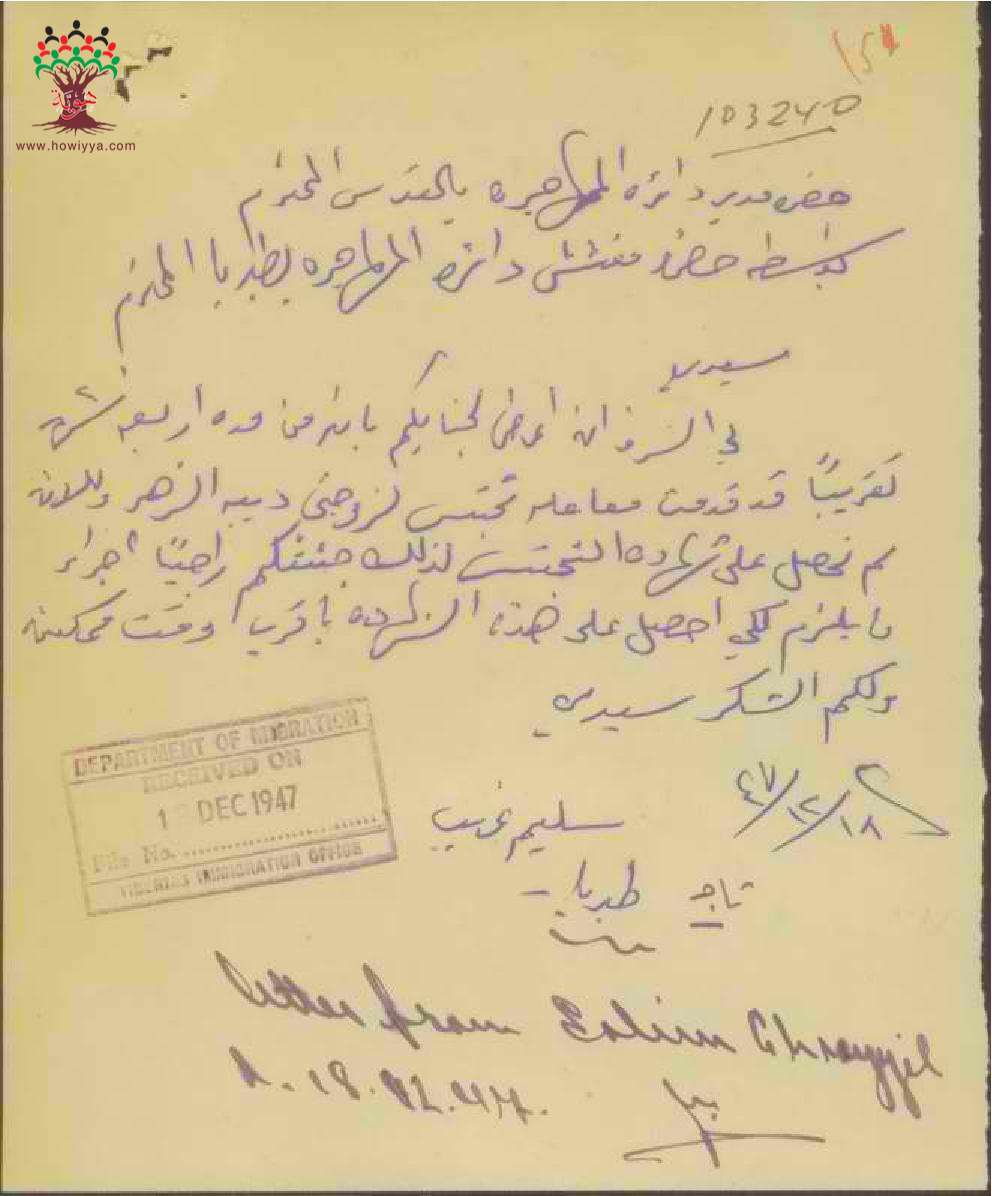 هوية
www.howiyya.com
103240
حضرة مدير دائره المهاجره بالقدس المحترم
بواسطه حضرة مفتش دائرة المهاجره بطبريا المحترم
سيدي
لي الشرف ان اعرض لجنابكم بانه من مده اربعه شهور
تقريبًا قد قدمت معامله تجنس لزوجتي ديبه الزهر وللان
لم نحصل على شهاده التجنس لذلك جئتكم راجيًا اجراء
ما يلزم لكي احصل على هذه الشهاده باقرب وقت ممكن
ولكم الشكر سيدي
١٨/١٢/٤٧
سليم
تاجر طبريا
DEPARTMENT OF MIGRATION
RECEIVED ON
DEC 1947
File No.
TIBERIAS IMMIGRATION OFFICE
letter from Salim
d. 18.12.47.